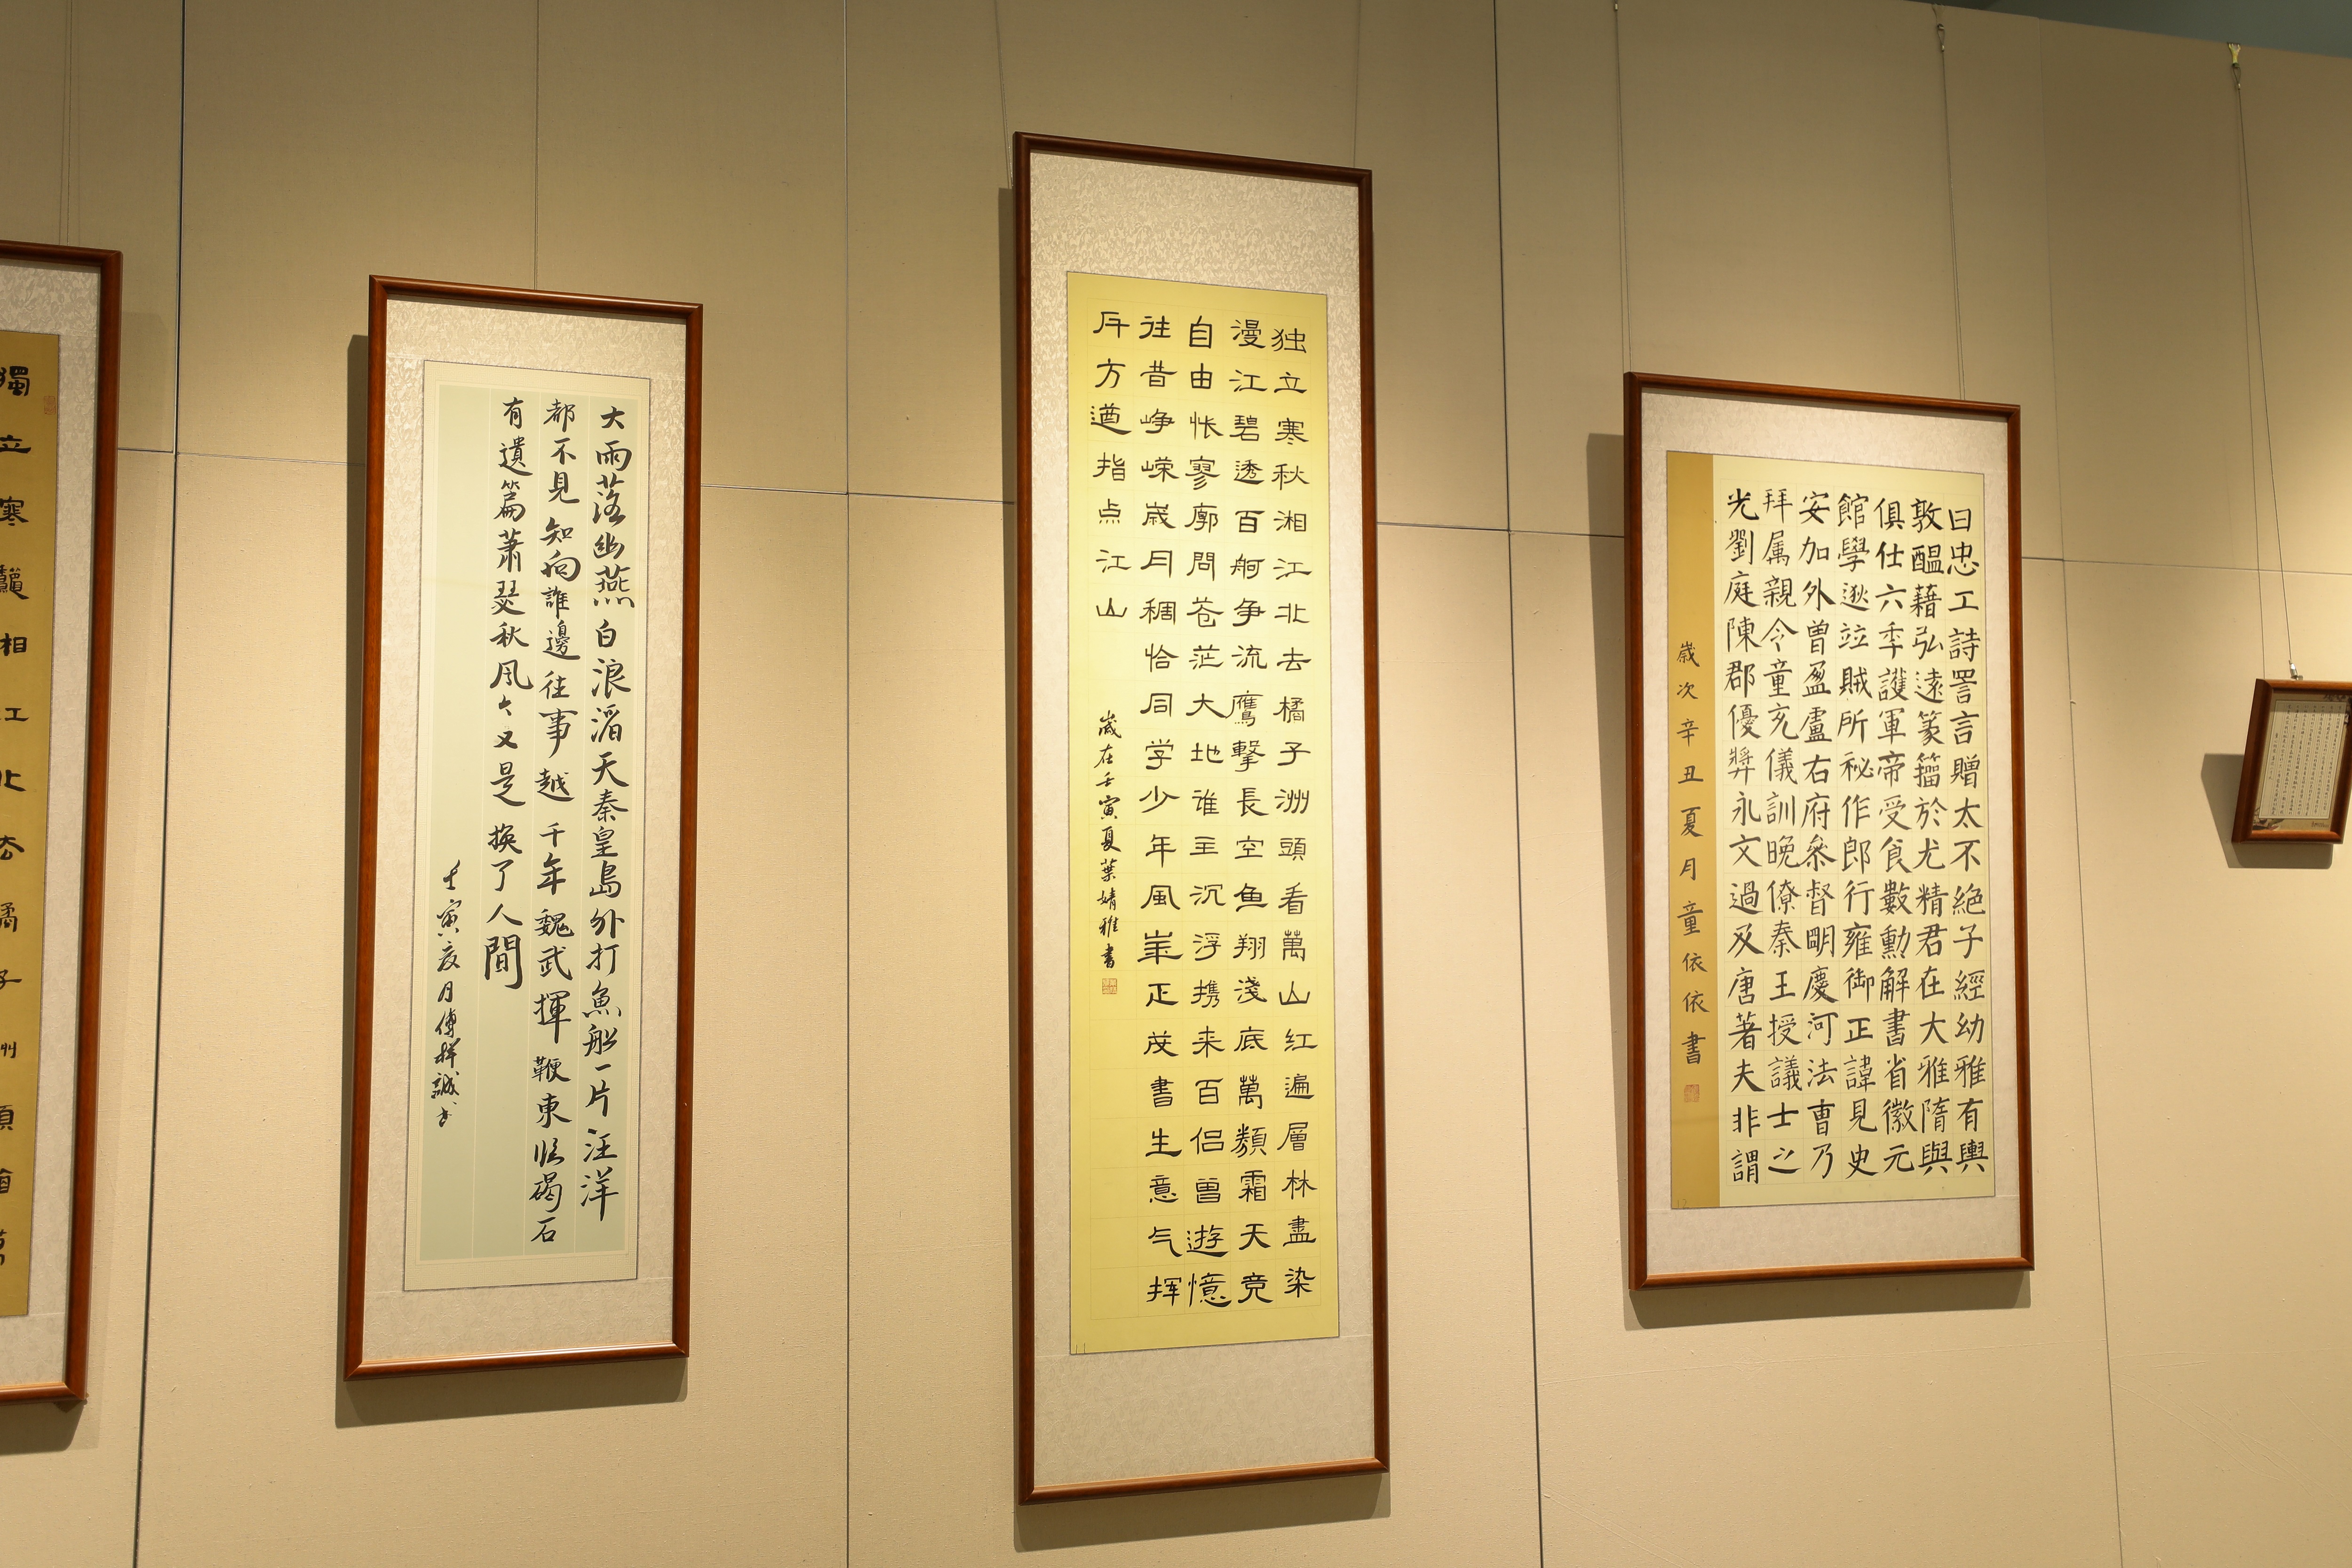 獨立寒龝湘江北去橘子洲頭看萬
大雨落幽燕白浪滔天秦皇島外打魚船一片汪洋
都不見知向誰邊往事越千年魏武揮鞭東临碣石
有遺篇蕭瑟秋風今又是換了人間
壬寅夏月傅梓誠書
独立寒秋湘江北去橘子洲頭看萬山红遍層林盡染
漫江碧透百舸争流鷹擊長空鱼翔淺底萬類霜天竞
自由怅寥廓問苍茫大地谁主沉浮携来百侣曾遊憶
往昔峥嵘歲月稠恰同学少年風華正茂書生意气挥
斥方遒指点江山
歲在壬寅夏葉婧雅書
曰忠工詩詈言贈太不絶子經幼雅有輿
敦醞藉弘遠篆籀於尤精君在大雅隋與
俱仕六季護軍帝受食數勳解書省徽元
館學逖竝賊所秘作郎行雍御正諱見史
安加外曾盈盧右府叅督明慶河法曹乃
拜属親令童充儀訓晚僚秦王授議士之
光劉庭陳郡優弉永文過及唐著夫非謂
歲次辛丑夏月童依依書